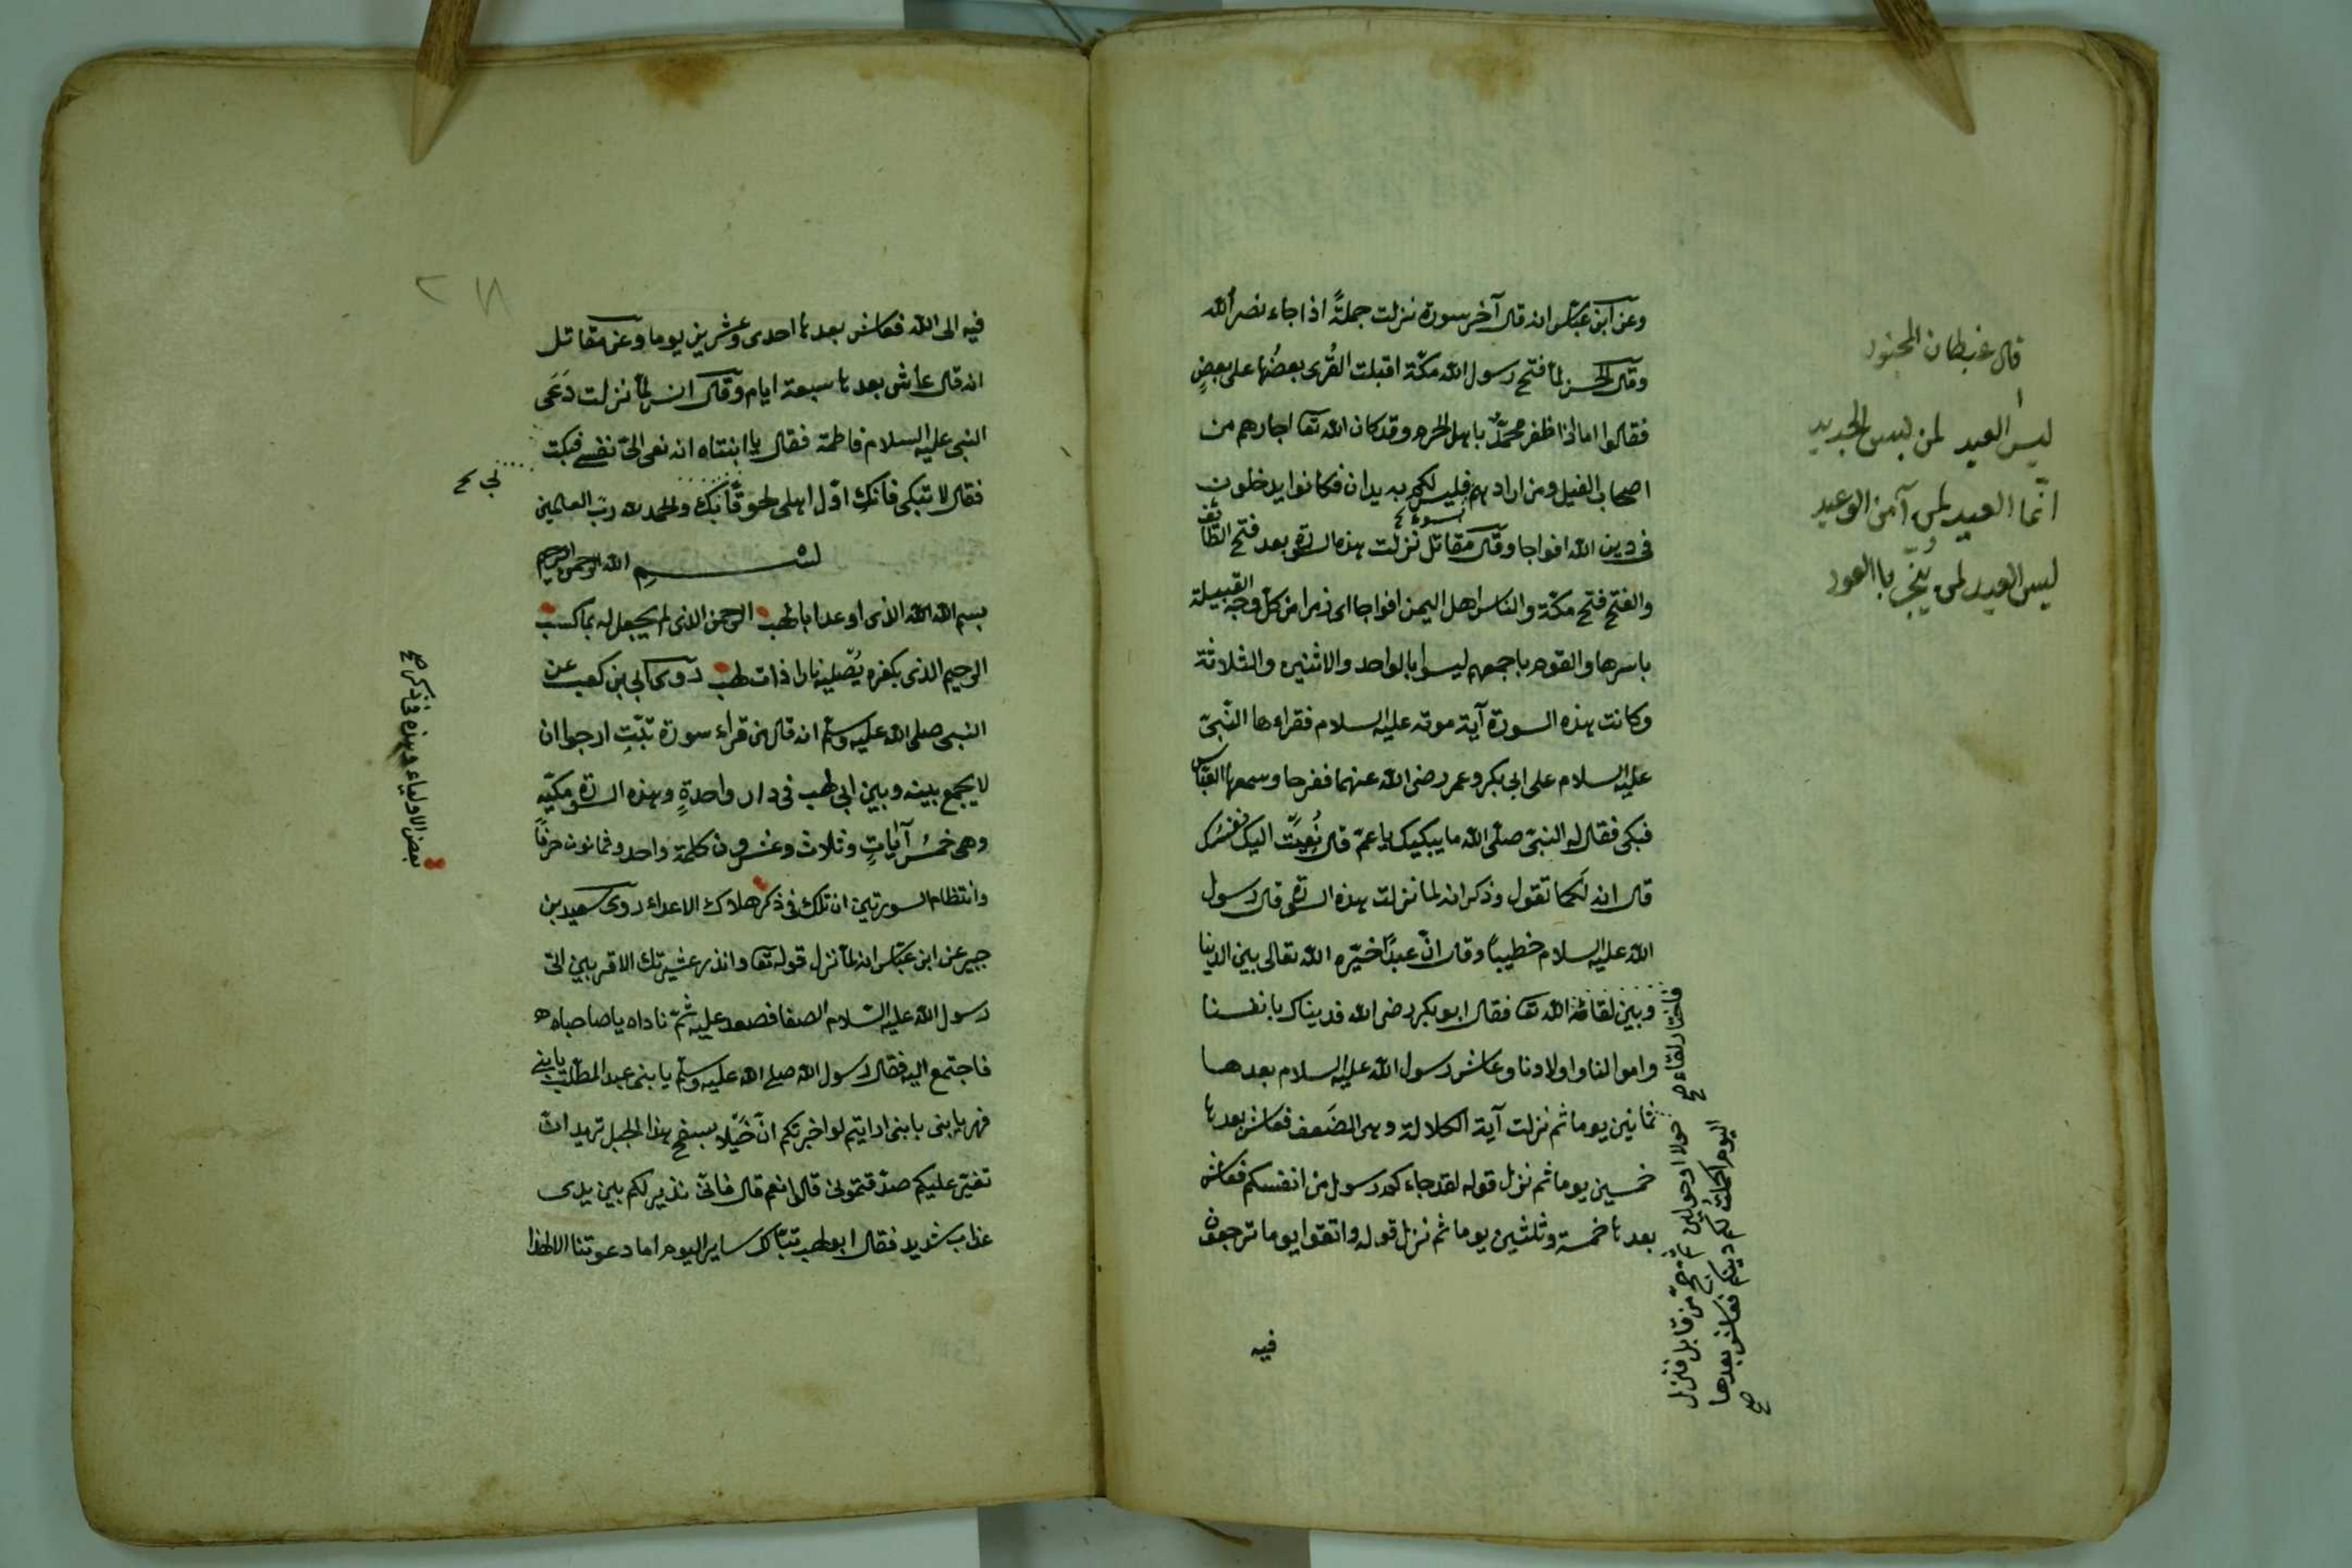 وعن ابن عباس انه قال آخر سورة نزلت جملةً اذا جاء نصر الله
وقال الحسن لما فتح رسول الله مكة اقبلت القُرى بعضُها على بعضٍ
فقالوا اما اذا ظفر محمدٌ باهل الحرم وقد كان الله تعا اجارهم من
اصحاب الفيل ومن ارادهم فليس لكم به يدان فكانوا يدخلون
فى دين الله افواجا وقال مقاتل نزلت هذه السورة بعد فتح الطائف
والفتح فتح مكة والناس اهل اليمن افواجا اى زمرا من كل وجه القبيلة
باسرها والقوم باجمعهم ليسوا بالواحد والاثنين والثلاثة
وكانت هذه السورة آية موته عليه السلام فقراءها النبىّ
عليه السلام على ابى بكر وعمر رضى الله عنهما ففرحا وسمعها العباس
فبكى فقال له النبىّ صلى الله ما يبكيك يا عم قال نُعِيَتْ اليك نفسُك
قال انه لَكما تقول وذكر انه لما نزلت هذه السورة قال رسول
الله عليه السلام خطيباً وقال انّ عبدًا خيّره الله تعالى بين الدينا
وبين لقائه الله تعا فقال ابو بكر رضى الله فديناك بانفسنا
واموالنا واولادنا وعاش رسول الله عليه السلام بعدها
ثمانين يوما ثم نزلت آية الكلالة وهى الضعف فعاش بعدها
خمسين يوما ثم نزل قوله لقد جاءكم رسول من انفسكم فعاش
بعدها خمسة وثلثين يوما ثم نزل قوله واتقوا يوما ترجعون
فيه
فاختار لقاءه صح
اليوم اكملت لكم دينكم فعاش بعدها
صح
ليس العيد لمن لبس الجديد
انّما العيد لمن آمن الوعيد
فيه الى الله فعاش بعدها احدى وعشرين يوما وعن مقاتل
انه قال عاش بعدها سبعة ايام وقال انه لما نزلت دَعَى
النبى عليه السلام فاطمة فقال يا ابنتاه انه نعى الىّ نفسى فبكت
فقال لا تبكى فانكِ اوّل اهلى لحوقًا بك والحمد لله ربّ العالمين
بسم الله الرحمن الرحيم
بسم الله الله الذى اوعد ابا لهب الرحمن الذى لم يجعل له بما كسب
الرحيم الذى بكفره يُصليه نارا ذات لهب روى ابى بن كعب عن
النبى صلى الله عليه وسلم انه قال من قراء سورة تبّتِ ارجوا ان
لا يجمع بينه وبين ابى لهب فى دار واحدةٍ وهذه السورة مكيّة
وهى خمسُ آياتٍ وثلاث وعشرون كلمة واحد وثمانون حرفاً
وانتظام السورتين ان تلك فى ذكر هلاك الاعداء روى سعيد بن
جبير عن ابن عبّاس انه لما نزل قوله تعا وانذر عشيرتك الاقربين اتى
رسول الله عليه السلام الصفا فصعد عليه ثمّ ناداه يا صاحباه
فاجتمع اليه فقال رسول الله صلى الله عليه وسلم يا بنى عبد المطلب يا بنى
فهر يا بنى يا بنى ارايتم لو اخبرتكم انّ خَيْلا بسفح هذا الجبل تريد ان
تغير عليكم صدّقتمونى قالوا نعم قال فانى نذير لكم بين يدى
عذاب شديد فقال ابو لهب تبّا لك ساير اليوم اما دعوتنا الا لهذا
بعض الاولياء وهذه فى ذكر صح